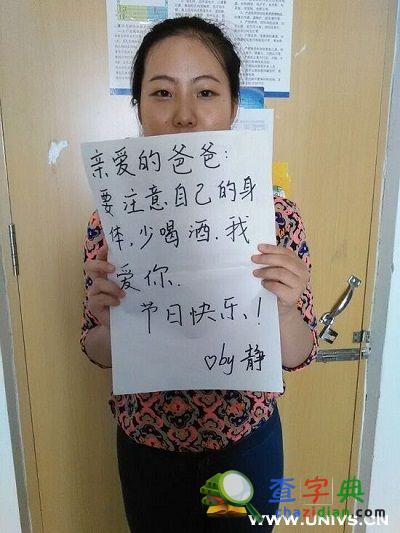 亲爱的爸爸:
要注意自己的身
体,少喝酒.我
爱你.
节日快乐!
♡by 静
查字典
chazidian.com
WWW.UNIVS.CN